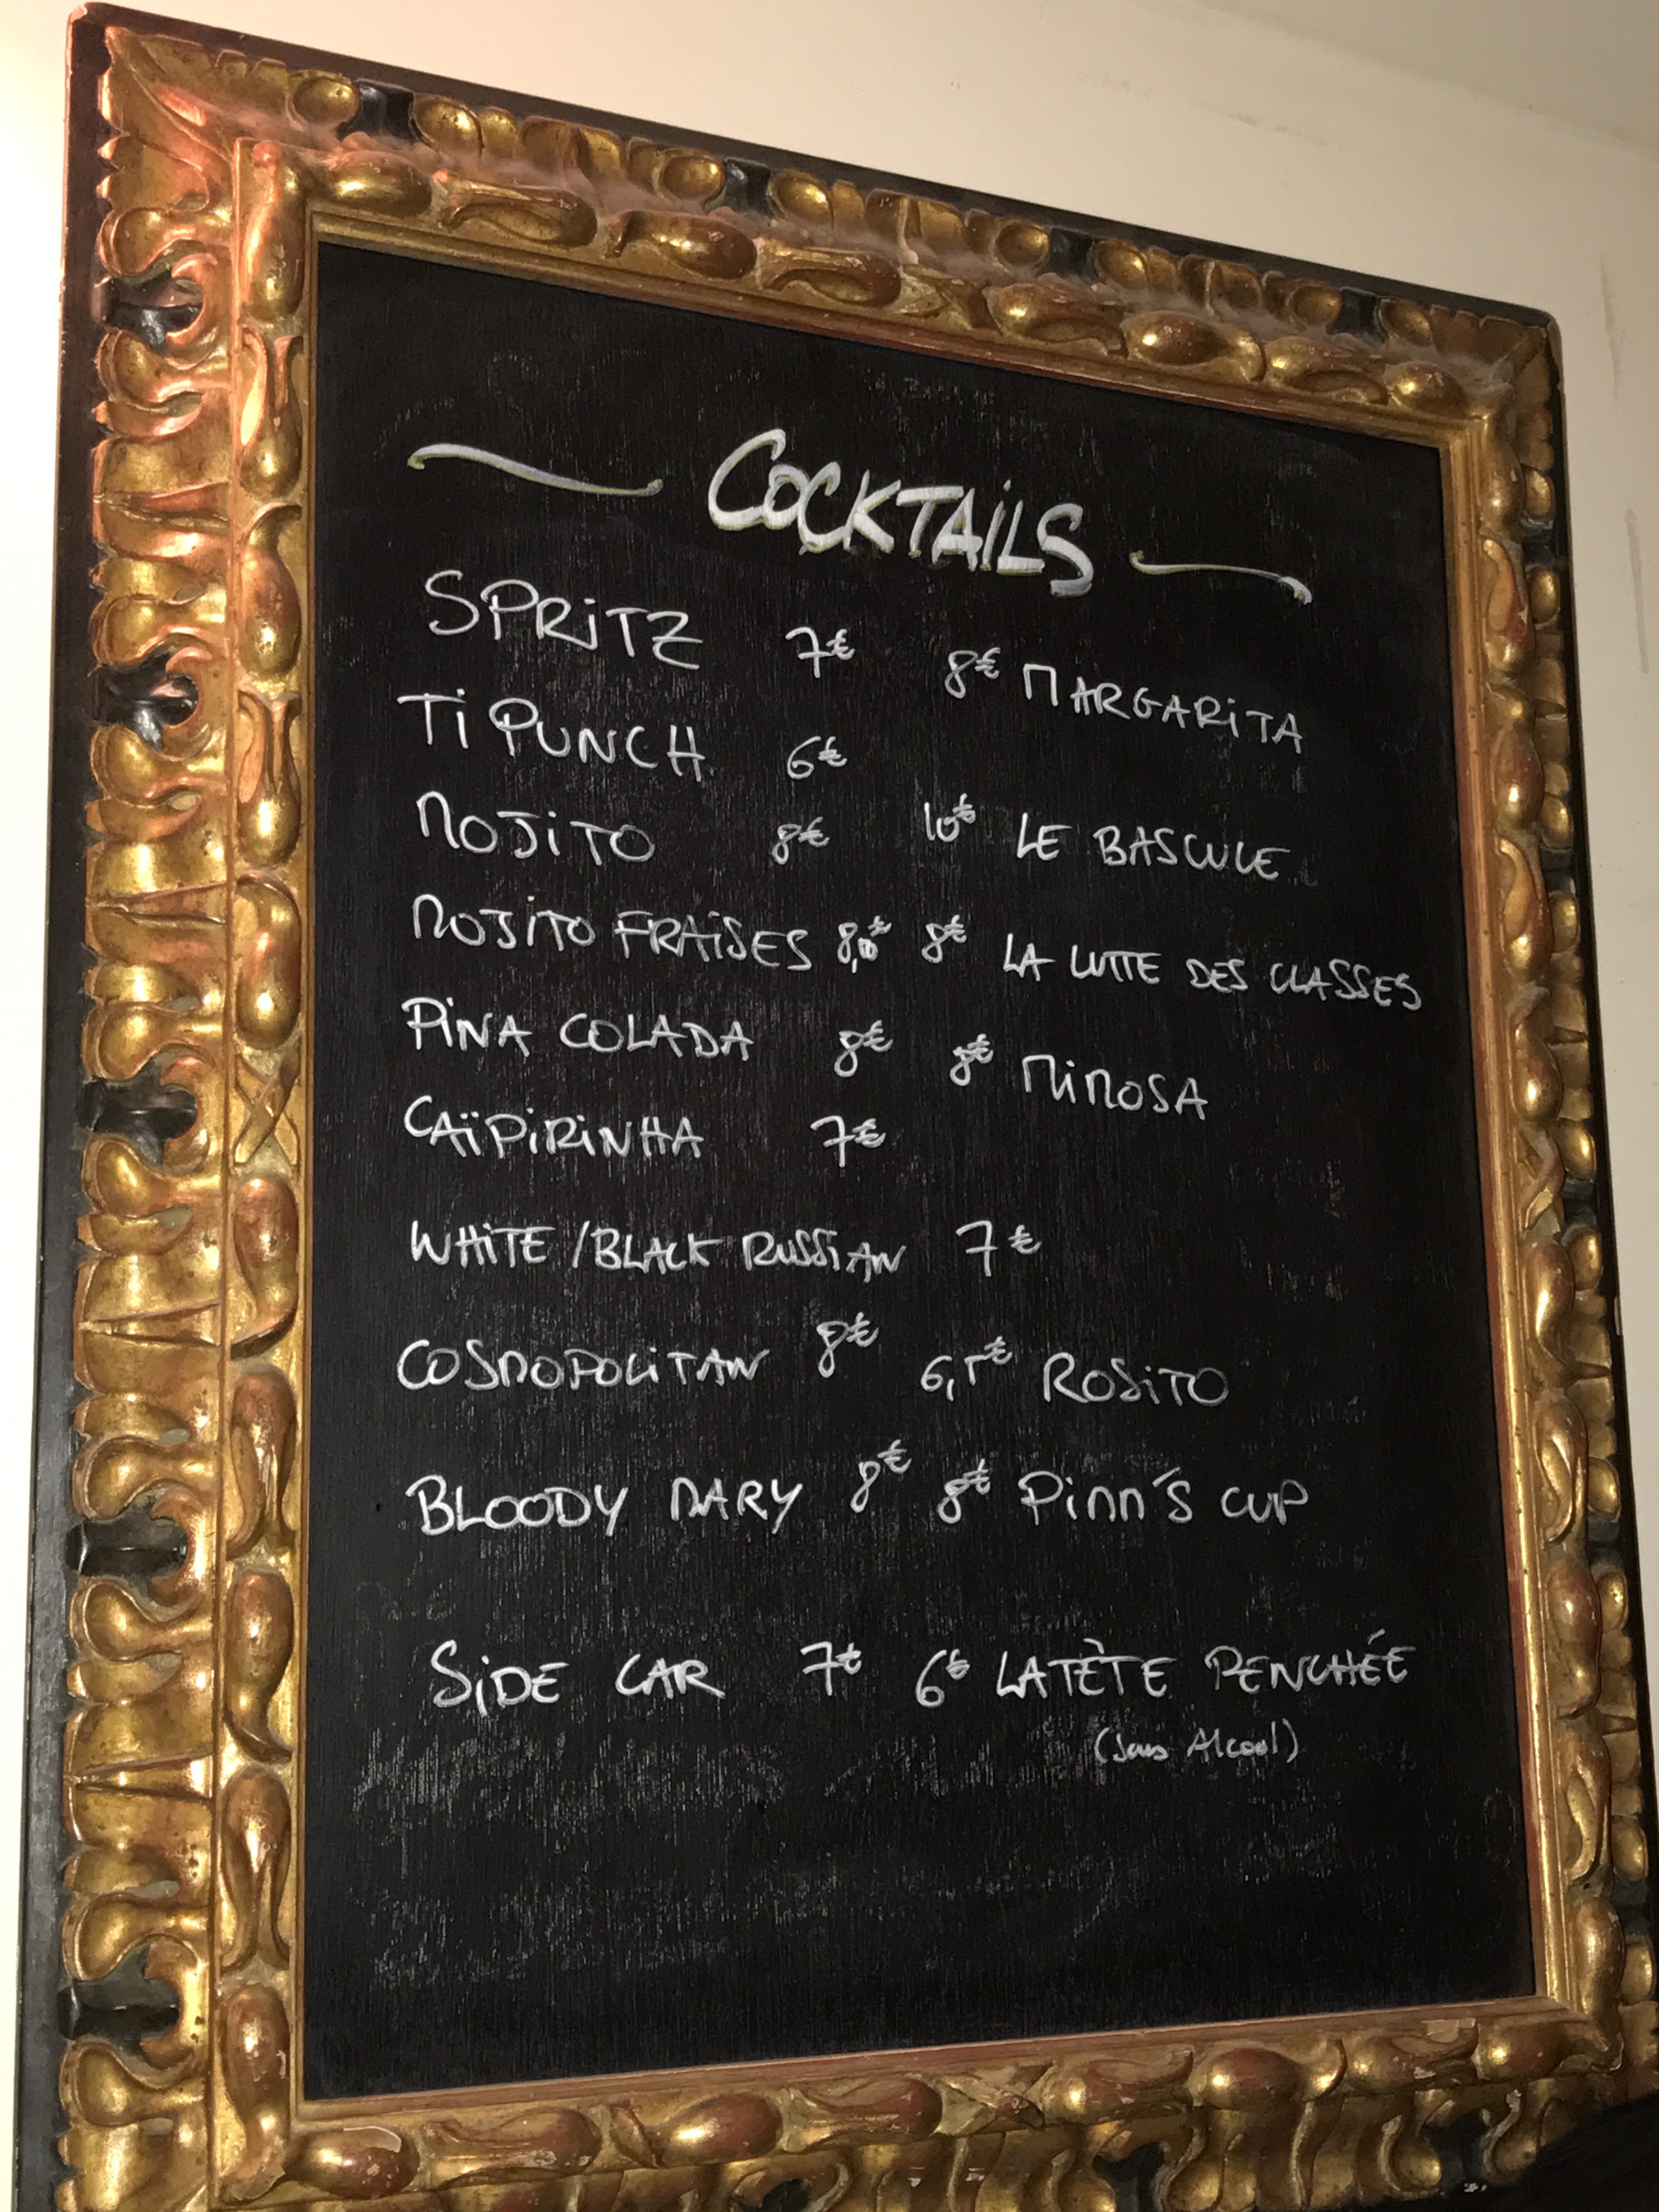 COCKTAiLS
SPRiTZ 7€ 8€ MARGARiTA
Ti PUNCH 6€
MOJiTO 8€ 10€ LE BASCULE
MOJiTO FRAiSES 8,00€ 8€ LA LUTTE DES CLASSES
PiNA COLADA 8€ 8€ MiMOSA
CAÏPiRiNHA 7€
WHiTE /BLACK RUSSiAN 7€
COSMOPOLiTAN 8€ 6,5€ ROSiTO
BLOODY MARY 8€ 8€ Pimm's CUP
SiDE CAR 7€ 6€ LA TÈTE PENCHÉE
(Sans Alcool)